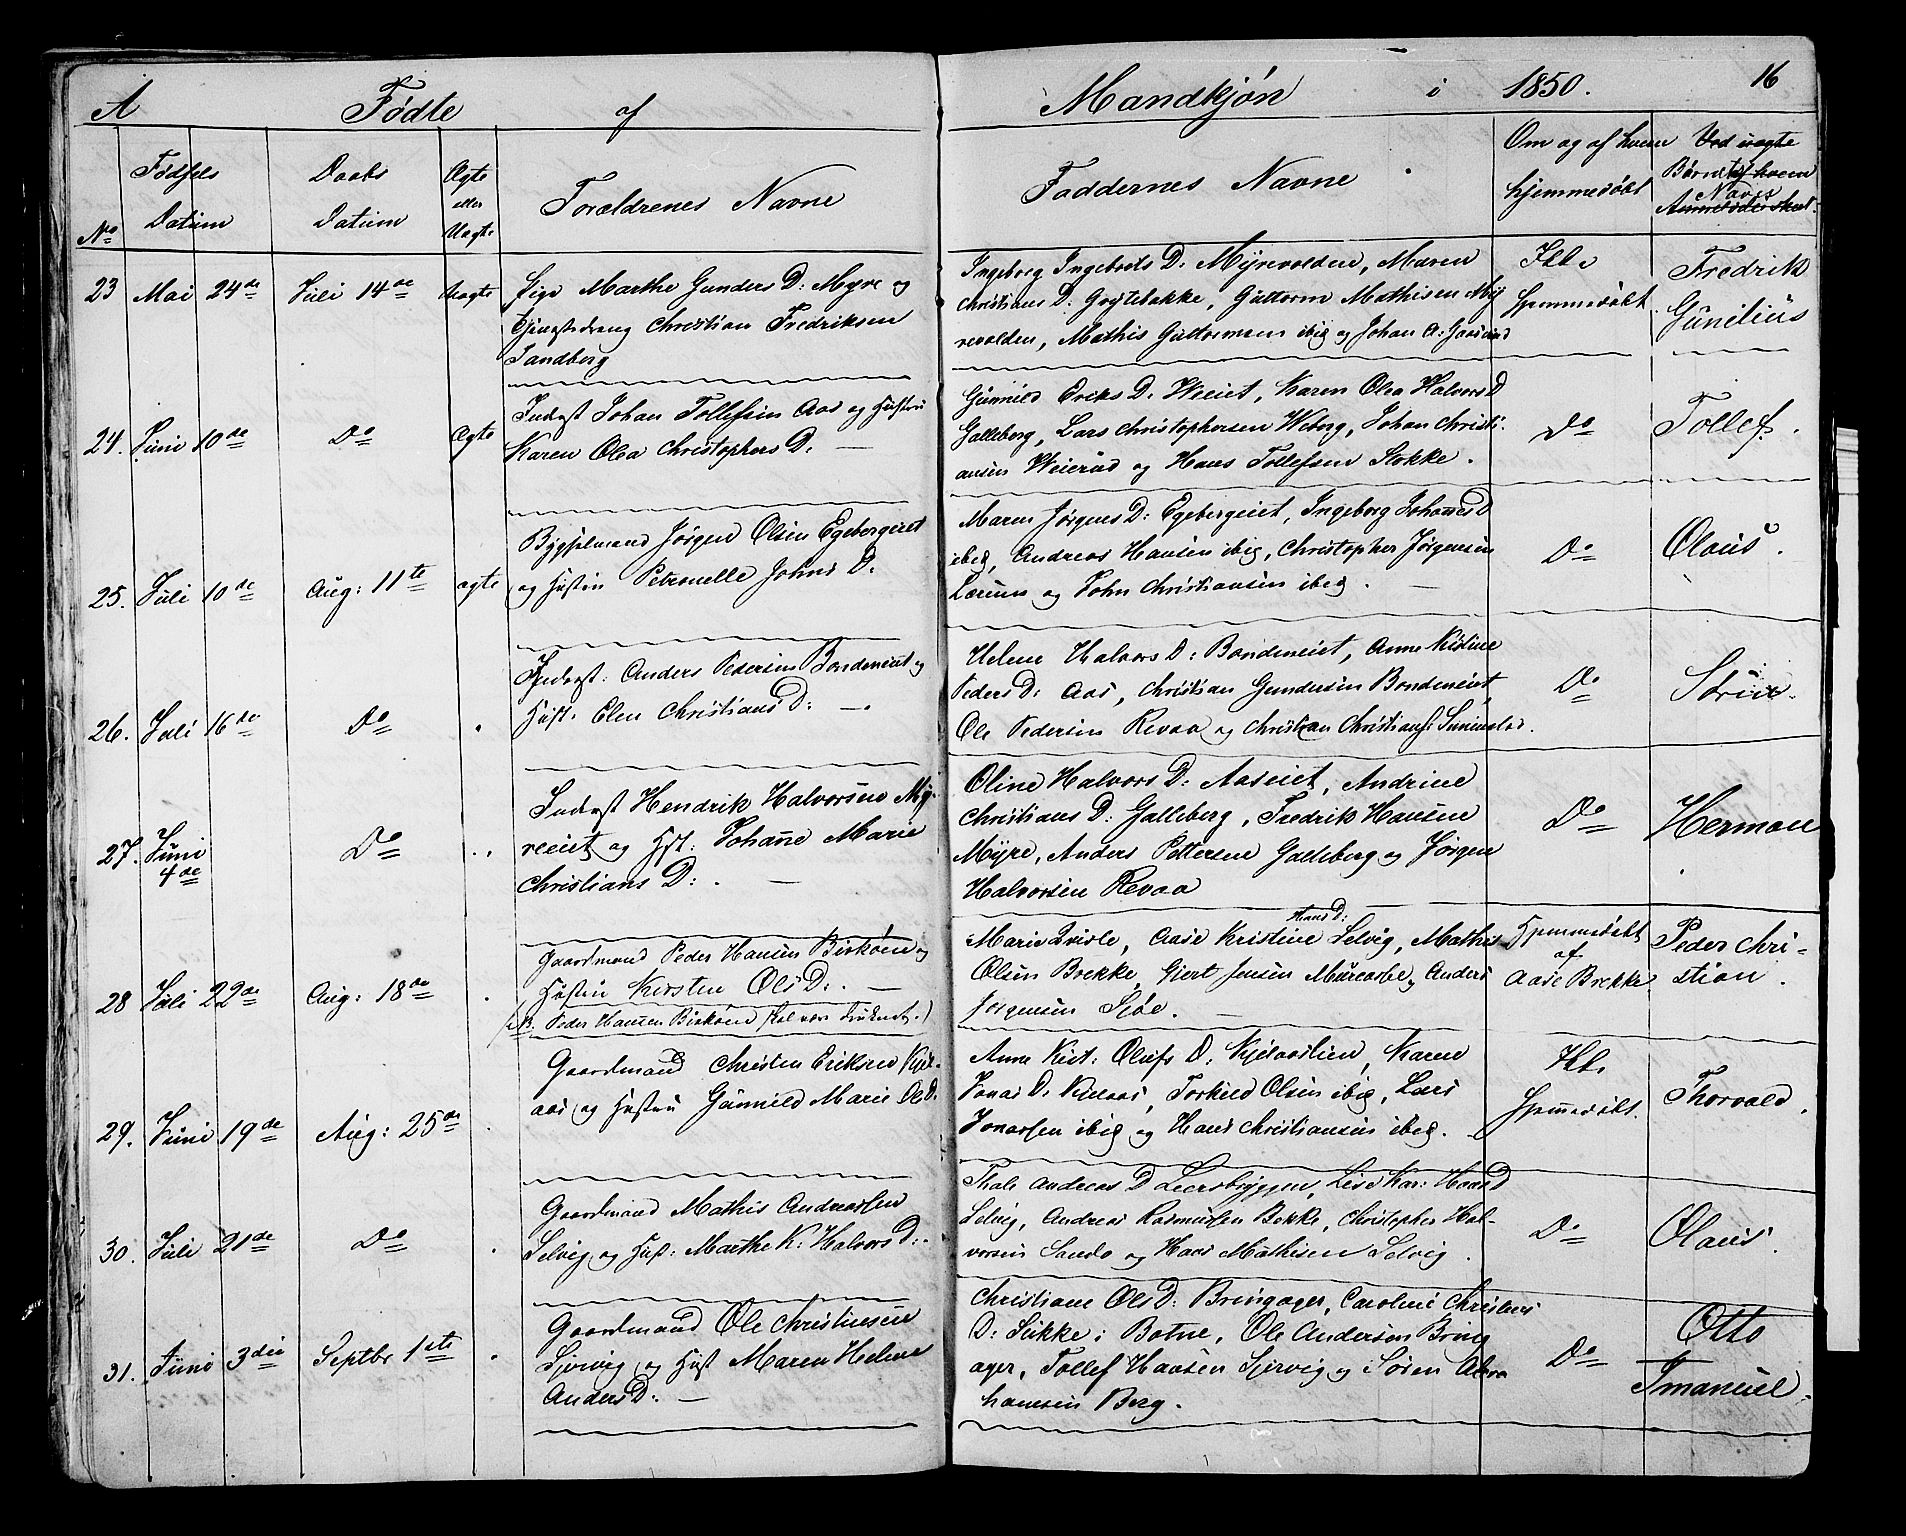 A Fødte af Mandkjøn i 1850. 16
No
Fødsels Datum
Daabs Datum
Ægte eller Uægte
Forældrenes Navne
Faddernes Navne
Om og af hvem hjemmedøbt
Ved uægte Børn af hvem
Navne
23 Mai 24de Juli 14de Uægte
Pige Marthe Gunders D: Myre og
Christian Fredriksen
Sandberg
Ingeborg Ingebrets D: Myrevolden, Maren
Christians D: Grytebakke, Guttorm Mathisen My
revolden, Mathis Guttormsen ibig og Johan
Ikke
hjemmedøbt.
Fredrik
Gunilius
24. Juni 10de Do Ægte
Inderst Johan Tollefsen Aas og Hustru
Karen Olea Christophers D. —
Gunnild Eriks D. Weiet, Karen Olea Halvors D
Galleberg, Lars Christophersen Weberg, Johan Christi-
ansen Weierud og Hans Tollefsen Stokke.
Do
Tollef.
25. Juli 10de Aug: 11te ægte
Bygselmand Jørgen Olsen Egebergeiet
og Hustru Petronelle Johns D.
Maren Jørgens D: Egebergeiet, Ingeborg Johannes D
ibeg, Andreas Hansen ibig, Christopher Jørgensen
Lærum og John Christiansen ibeg.
Do
Olaus.
26. Juli 16de Do
Inderst: Anders Pedersen Bondeneiet og
Hust. Elen Christians D: —.
Helene Halvors D: Bondeneiet, Anne Kristine
Peders D: Aas, Christian Gundersen Bondeneiet,
Ole Pedersen Revaa og Christian Christians:
Do
27. Juni 4de Do
Inderst Hendrik Halvorsen My-
reeiet og Hst: Johanne Marie
Christians D: . —
Oline Halvors D: Aaseiet, Andrine
Christians D: Galleberg, Fredrik Hansen
Myre, Anders Pettersen Galleberg og Jørgen
Halvorsen Revaa
Do
Herman
28 Juli 22de Aug: 18de
Gaardmand Peder Hansen Birkøen og
Hustru Kirsten Ols D: . —
(NB. Peder Hansen Birkøen skal være Enkemd.)
Hans D:
Marie, Aase Kristine Selvig, Mathis
Olsen Brekke, Gjert Jensen, Anders
Jørgensen Sjøe.
Hjemmedøbt
af
Aase Brekke.
Peder Chri-
stian.
29. Juni 19de Aug: 25de
Gaardmand Christen Eriksen Kjel-
aas og Hustru Gunnild Marie Ols D.
Anne Kirst: Olufs D. Kjelaaslien, Karen
Jonas D. Kjelaas, Torkild Olsen ibig, Lars
Jonassen ibig og Hans Christiansen ibeg.
Ikke
hjemmedøbt.
Thorvald.
30. Juli 21de Do
Gaardmand Mathis Andreassen
Selvig og Hust: Marthe K: Halvors D:.
Thale Andreas D Leersbryggen, Lise Kar: Hans D
Selvig, Andreas Rasmussen Bekke, Christopher Hal-
vorsen Sando og Hans Mathisen Selvig.
Do
Olaus.
31. Juni 3die Septbr 1ste
Gaardmand Ole Christensen
Sjervig og Hust Maren Helene
Anders D: —
Christiane Ols D: Bringager, Caroline Christens
D: Sukke i Botne, Ole Andersen Bring
ager, Tollef Hansen Sjervig og Søren Abra
hamsen Berg.
Do
Otto
Imanuel.